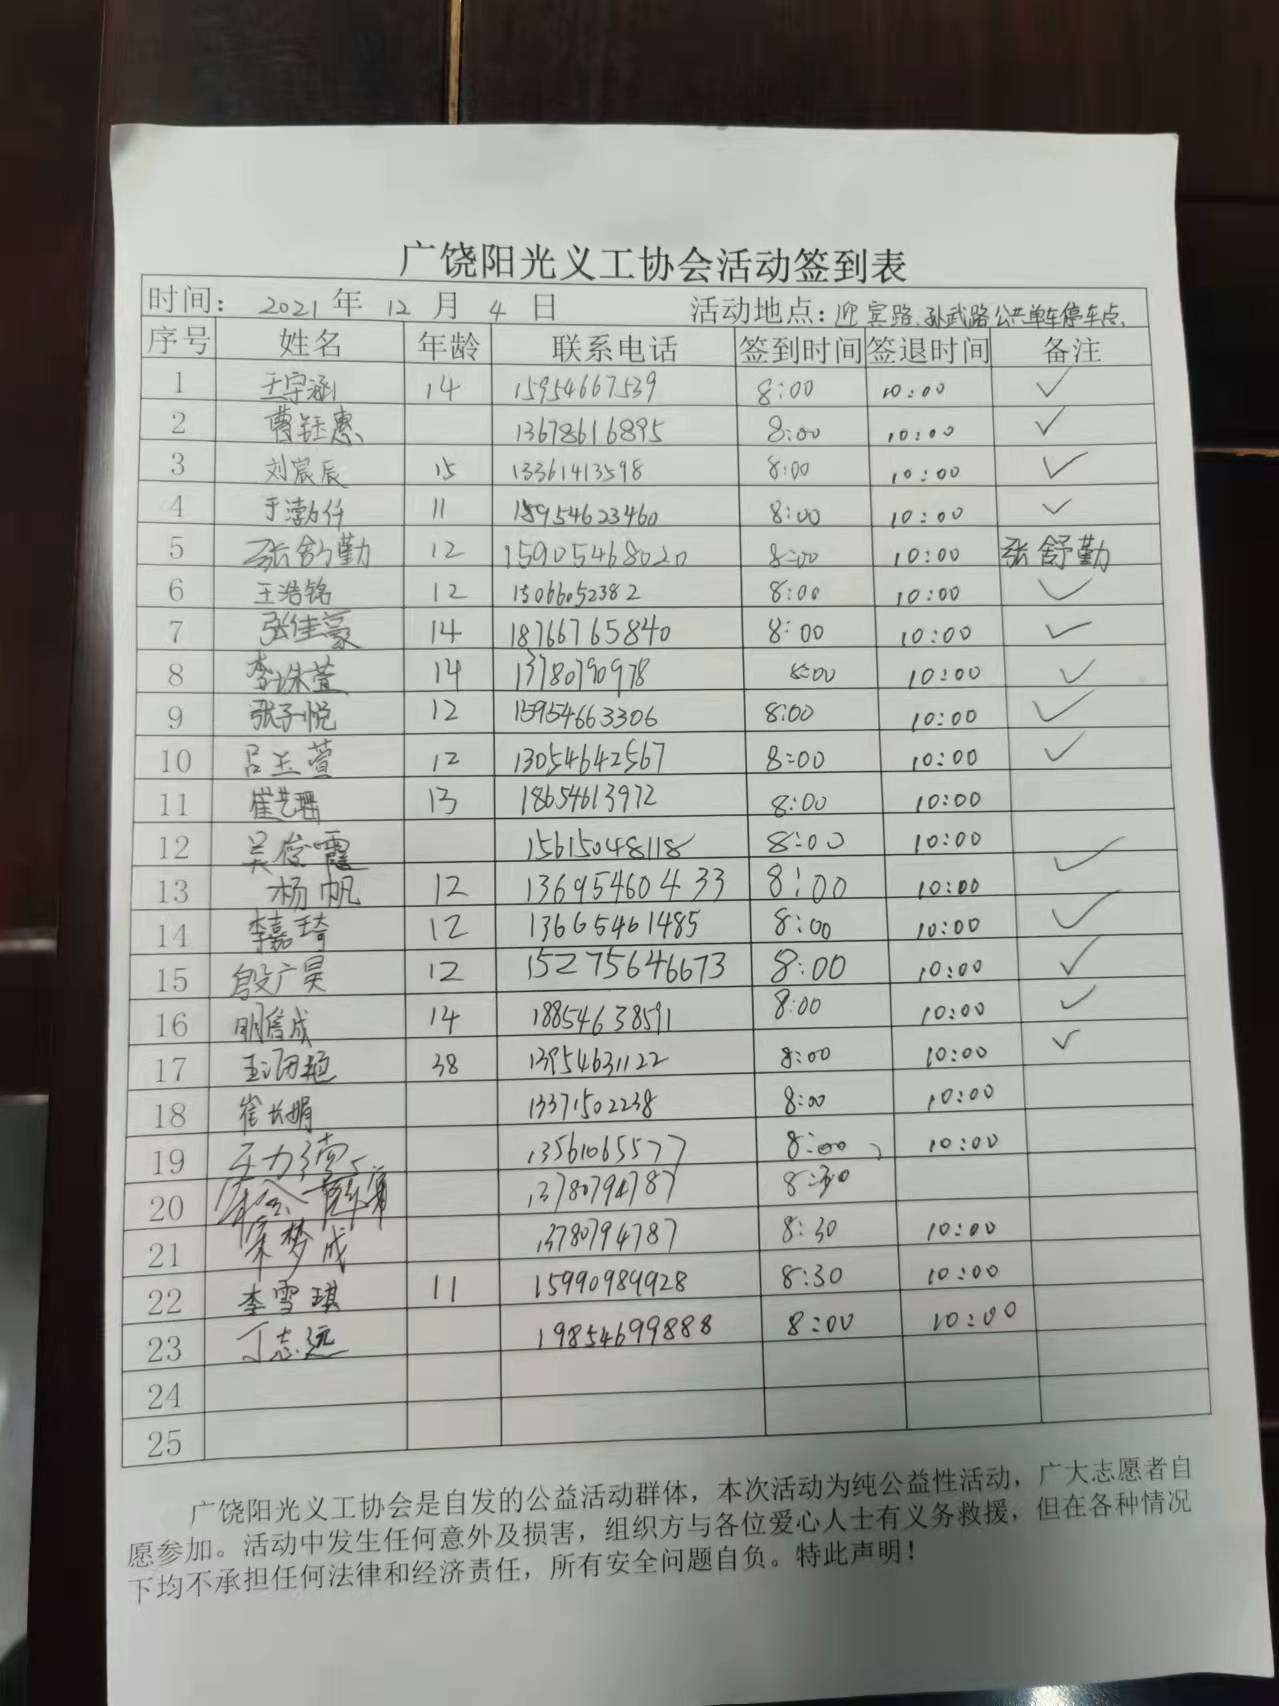 广饶阳光义工协会活动签到表
时间： 2021 年 12 月 4 日 活动地点：迎宾路、孙武路公共单车停车点、
序号 姓名 年龄 联系电话 签到时间 签退时间 备注
1 王宇涵 14 15954667539 8:00 10:00 ✓
2 曹钰惠 13678616895 8:00 10:00 ✓
3 刘宸辰 15 13361413598 8:00 10:00 ✓
4 于渤仟 11 15954623460 8:00 10:00 ✓
5 张舒勤 12 15905468020 8:00 10:00 张舒勤
6 王浩铭 12 15066052382 8:00 10:00 ✓
7 张佳豪 14 18766765840 8:00 10:00 ✓
8 李姝萱 14 13780790978 8:00 10:00 ✓
9 张子悦 12 15954663306 8:00 10:00 ✓
10 吕玉萱 12 13054642567 8:00 10:00 ✓
11 崔艺珊 13 18654613972 8:00 10:00
12 吴俊霞 15615048118 8:00 10:00
13 杨帆 12 13695460433 8:00 10:00 ✓
14 李嘉琦 12 13665461485 8:00 10:00 ✓
15 殷广昊 12 15275646673 8:00 10:00 ✓
16 明信成 14 18854638591 8:00 10:00 ✓
17 38 13954631122 8:00 10:00 ✓
18 崔长娟 13371502238 8:00 10:00
19 13561065577 8:00 10:00
20 13780794787 8:30
21 秦梦成 13780794787 8:30 10:00
22 李雪琪 11 15990989928 8:30 10:00
23 丁志远 19854699888 8:00 10:00
24
25
广饶阳光义工协会是自发的公益活动群体，本次活动为纯公益性活动，广大志愿者自
愿参加。活动中发生任何意外及损害，组织方与各位爱心人士有义务救援，但在各种情况
下均不承担任何法律和经济责任，所有安全问题自负。特此声明！